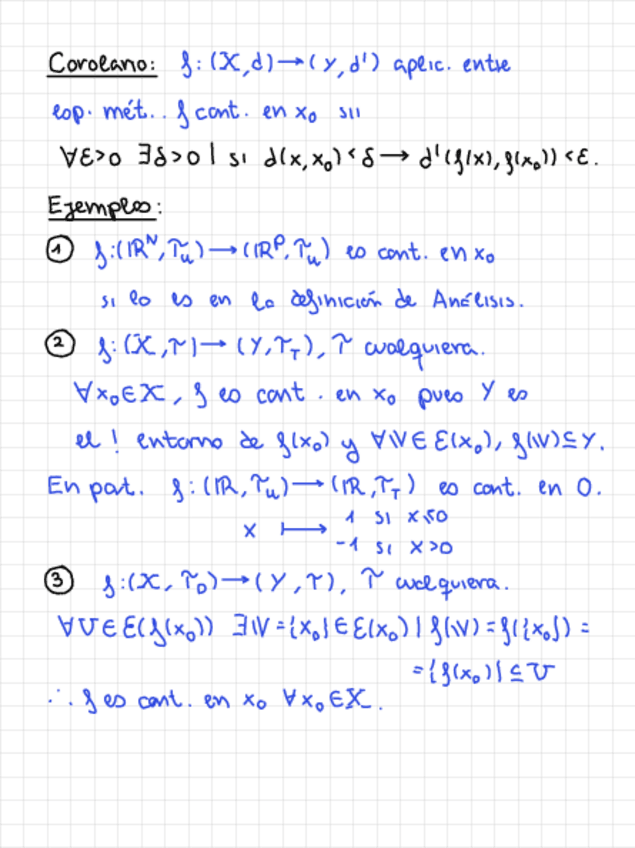 Corolario: f: (X,d)→(Y,d') aplic. entre
esp. mét.. f cont. en x₀ sii
∀ε>0 ∃δ>0 | si d(x,x₀)<δ → d'(f(x), f(x₀))<ε.
Ejemplos:
① f:(ℝᴺ,τᵤ)→(ℝᴾ,τᵤ) es cont. en x₀
si lo es en la definición de Análisis.
② f:(X,τ)→(Y,τ_T), τ cualquiera.
∀x₀∈X, f es cont. en x₀ pues Y es
el ! entorno de f(x₀) y ∀W∈ε(x₀), f(W)⊆Y.
En part. f:(ℝ,τᵤ)→(ℝ,τ_T) es cont. en 0.
x ↦ 1 si x≤0
-1 si x>0
③ f:(X,τ_D)→(Y,τ), τ cualquiera.
∀U∈ε(f(x₀)) ∃W={x₀}∈ε(x₀) | f(W)=f({x₀})=
={f(x₀)}⊆U
∴ f es cont. en x₀ ∀x₀∈X.